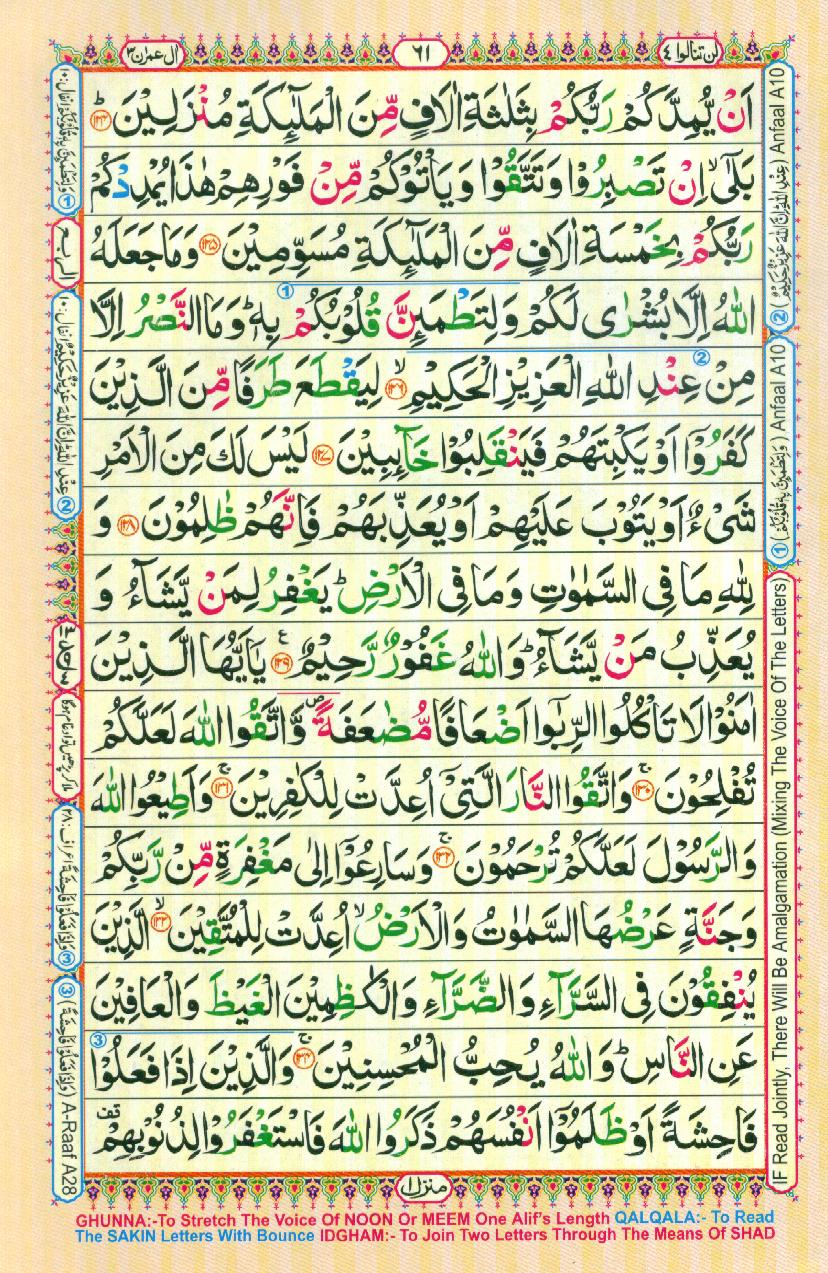 لن تنالوا ٤
٦١
اٰل عمرٰن ٣
اَنْ يُّمِدَّكُمْ رَبُّكُمْ بِثَلٰثَةِ اٰلَافٍ مِّنَ الْمَلٰٓئِكَةِ مُنْزَلِيْنَ ؕ﴿۱۲۴﴾
بَلٰٓى ۙ اِنْ تَصْبِرُوْا وَتَتَّقُوْا وَيَاْتُوْكُمْ مِّنْ فَوْرِهِمْ هٰذَا يُمْدِدْكُمْ
رَبُّكُمْ بِخَمْسَةِ اٰلَافٍ مِّنَ الْمَلٰٓئِكَةِ مُسَوِّمِيْنَ ﴿۱۲۵﴾ وَمَا جَعَلَهُ
اللّٰهُ اِلَّا بُشْرٰى لَكُمْ وَلِتَطْمَئِنَّ قُلُوْبُكُمْ بِهٖ ؕ وَمَا النَّصْرُ اِلَّا
مِنْ عِنْدِ اللّٰهِ الْعَزِيْزِ الْحَكِيْمِ ۙ﴿۱۲۶﴾ لِيَقْطَعَ طَرَفًا مِّنَ الَّذِيْنَ
كَفَرُوْۤا اَوْ يَكْبِتَهُمْ فَيَنْقَلِبُوْا خَآئِبِيْنَ ﴿۱۲۷﴾ لَيْسَ لَكَ مِنَ الْاَمْرِ
شَيْءٌ اَوْ يَتُوْبَ عَلَيْهِمْ اَوْ يُعَذِّبَهُمْ فَاِنَّهُمْ ظٰلِمُوْنَ ﴿۱۲۸﴾ وَ
لِلّٰهِ مَا فِى السَّمٰوٰتِ وَمَا فِى الْاَرْضِ ؕ يَغْفِرُ لِمَنْ يَّشَآءُ وَ
يُعَذِّبُ مَنْ يَّشَآءُ ؕ وَاللّٰهُ غَفُوْرٌ رَّحِيْمٌ ﴿۱۲۹﴾ يٰۤاَيُّهَا الَّذِيْنَ
اٰمَنُوْا لَا تَاْكُلُوا الرِّبٰٓوا اَضْعَافًا مُّضٰعَفَةً ۪ وَّاتَّقُوا اللّٰهَ لَعَلَّكُمْ
تُفْلِحُوْنَ ۚ﴿۱۳۰﴾ وَاتَّقُوا النَّارَ الَّتِىْۤ اُعِدَّتْ لِلْكٰفِرِيْنَ ۚ﴿۱۳۱﴾ وَاَطِيْعُوا اللّٰهَ
وَالرَّسُوْلَ لَعَلَّكُمْ تُرْحَمُوْنَ ۚ﴿۱۳۲﴾ وَسَارِعُوْۤا اِلٰى مَغْفِرَةٍ مِّنْ رَّبِّكُمْ
وَجَنَّةٍ عَرْضُهَا السَّمٰوٰتُ وَالْاَرْضُ ۙ اُعِدَّتْ لِلْمُتَّقِيْنَ ۙ﴿۱۳۳﴾ الَّذِيْنَ
يُنْفِقُوْنَ فِى السَّرَّآءِ وَالضَّرَّآءِ وَالْكٰظِمِيْنَ الْغَيْظَ وَالْعَافِيْنَ
عَنِ النَّاسِ ؕ وَاللّٰهُ يُحِبُّ الْمُحْسِنِيْنَ ۚ﴿۱۳۴﴾ وَالَّذِيْنَ اِذَا فَعَلُوْا
فَاحِشَةً اَوْ ظَلَمُوْۤا اَنْفُسَهُمْ ذَكَرُوا اللّٰهَ فَاسْتَغْفَرُوْا لِذُنُوْبِهِمْ قف
② (عِنْدِ اللّٰهِ اِنَّ اللّٰهَ عَزِيْزٌ حَكِيْمٌ) Anfaal A10
① (وَلِتَطْمَئِنَّ بِهٖ قُلُوْبُكُمْ) Anfaal A10
IF Read Jointly, There Will Be Amalgamation (Mixing The Voice Of The Letters)
③ (وَاِذَا فَعَلُوْا فَاحِشَةً) A-Raaf A28
منزل ۱
GHUNNA:-To Stretch The Voice Of NOON Or MEEM One Alif's Length QALQALA:- To Read
The SAKIN Letters With Bounce IDGHAM:- To Join Two Letters Through The Means Of SHAD